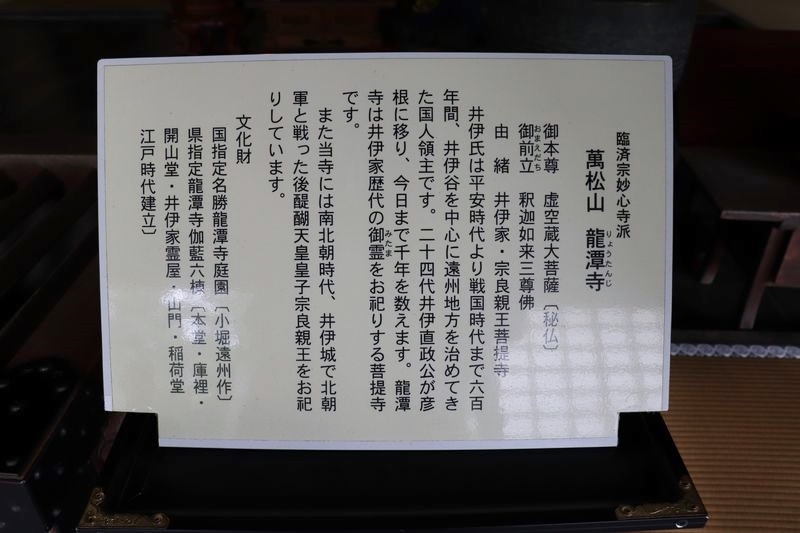 臨済宗妙心寺派
萬松山 龍潭寺
りょうたんじ
御本尊 虚空蔵大菩薩〔秘仏〕
御前立 釈迦如来三尊佛
おまえだち
由緒 井伊家・宗良親王菩提寺
井伊氏は平安時代より戦国時代まで六百
年間、井伊谷を中心に遠州地方を治めてき
た国人領主です。二十四代井伊直政公が彦
根に移り、今日まで千年を数えます。龍潭
寺は井伊家歴代の御霊をお祀りする菩提寺
みたま
です。
また当寺には南北朝時代、井伊城で北朝
軍と戦った後醍醐天皇皇子宗良親王をお祀
りしています。
文化財
国指定名勝龍潭寺庭園〔小堀遠州作〕
県指定龍潭寺伽藍六棟〔本堂・庫裡・
開山堂・井伊家霊屋・山門・稲荷堂
江戸時代建立〕